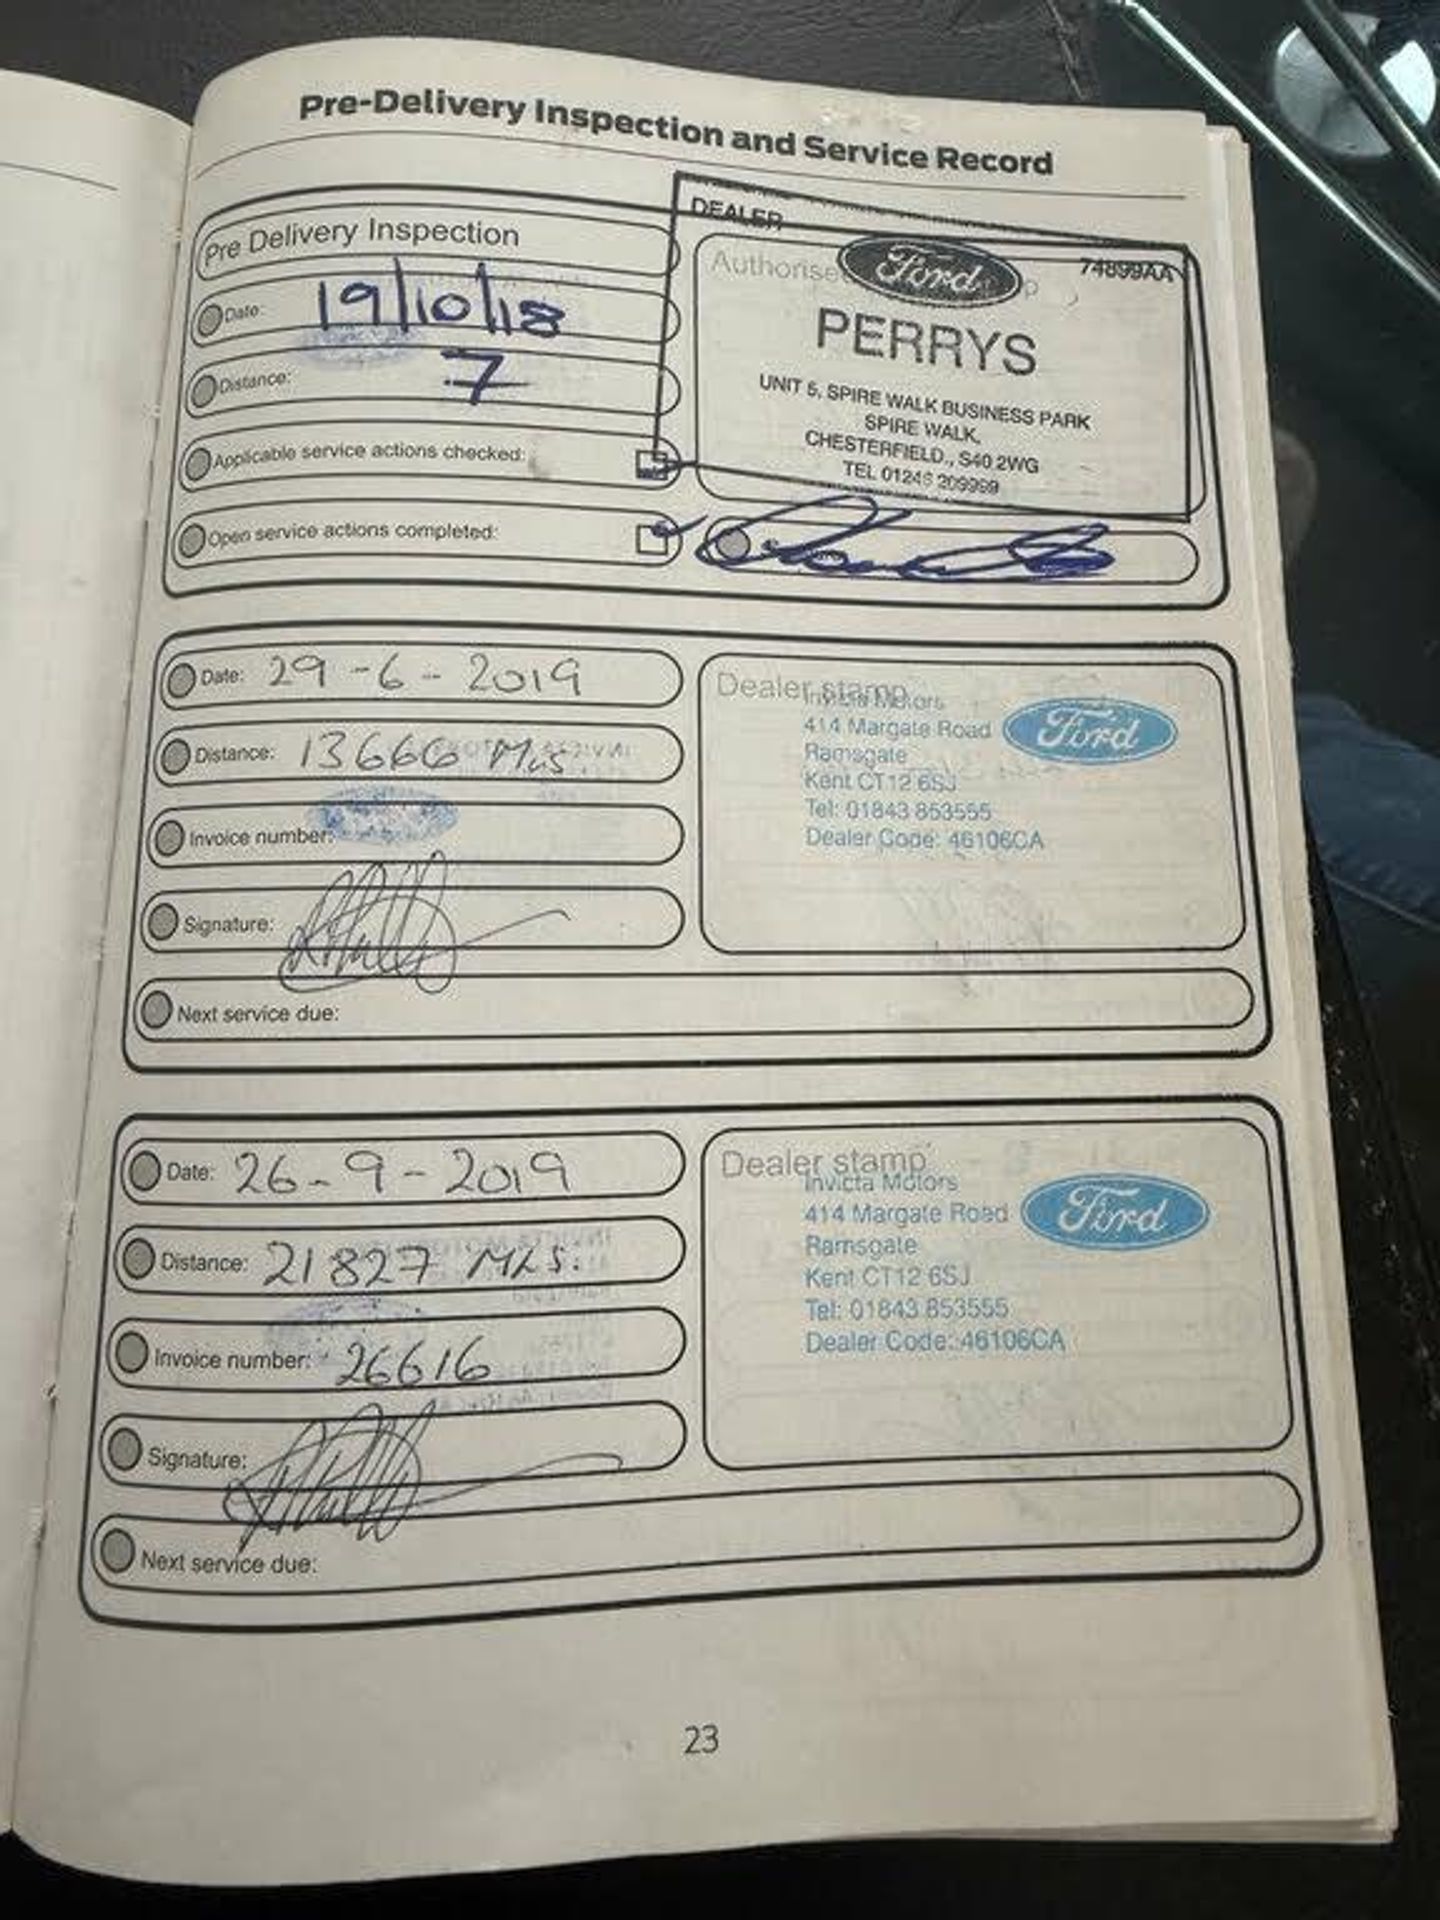 Pre-Delivery Inspection and Service Record
Pre Delivery Inspection
Date: 19/10/18
Distance: 7
Applicable service actions checked:
Open service actions completed:
DEALER
Authorise
Ford
74899AA
PERRYS
UNIT 5, SPIRE WALK BUSINESS PARK
SPIRE WALK,
CHESTERFIELD., S40 2WG
TEL 01246 209999
Date: 29-6-2019
Distance: 13666 Mls.
Invoice number:
Signature:
Next service due:
Dealer stamp
Invicta Motors
414 Margate Road
Ramsgate
Kent CT12 6SJ
Tel: 01843 853555
Dealer Code: 46106CA
Ford
Date: 26-9-2019
Distance: 21827 MLS.
Invoice number: 26616
Signature:
Next service due:
Dealer stamp
Invicta Motors
414 Margate Road
Ramsgate
Kent CT12 6SJ
Tel: 01843 853555
Dealer Code: 46106CA
Ford
23